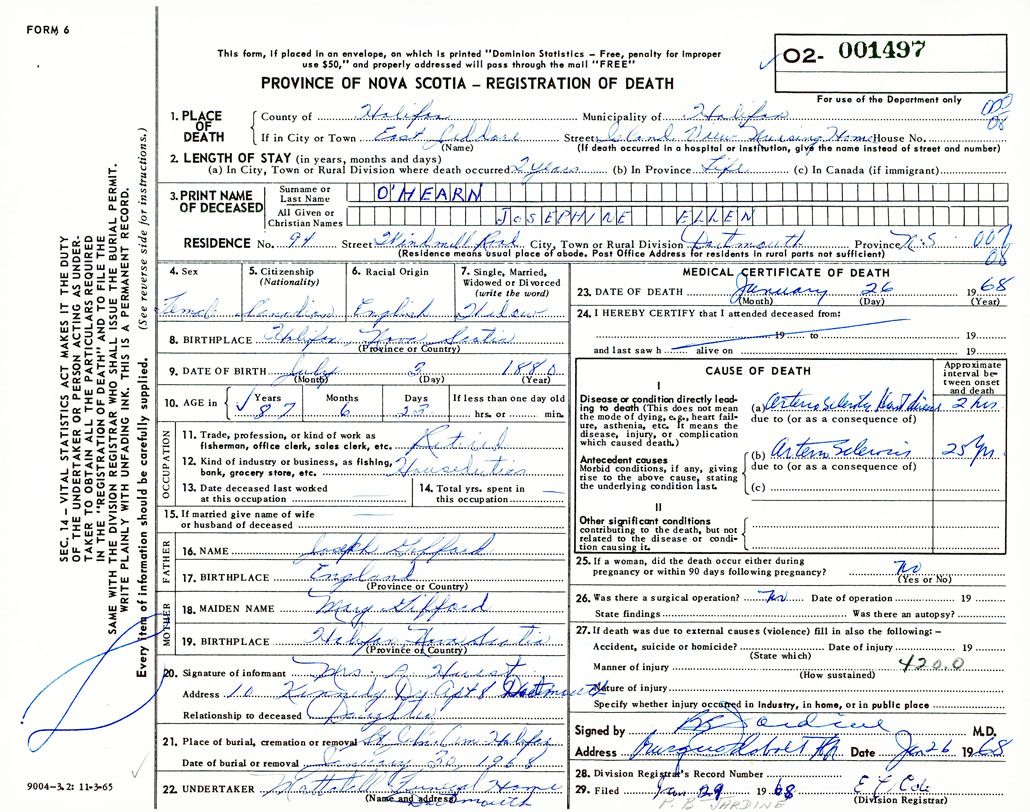 FORM 6
This form, if placed in an envelope, on which is printed "Dominion Statistics – Free, penalty for improper
use $50," and properly addressed will pass through the mail "FREE"
PROVINCE OF NOVA SCOTIA – REGISTRATION OF DEATH
O2- 001497
For use of the Department only
1. PLACE OF DEATH
County of Halifax Municipality of Halifax
If in City or Town East Street Island View Nursing Home House No.
(Name) (If death occurred in a hospital or institution, give the name instead of street and number)
2. LENGTH OF STAY (in years, months and days)
(a) In City, Town or Rural Division where death occurred 2 years (b) In Province Life (c) In Canada (if immigrant)
3. PRINT NAME OF DECEASED
Surname or Last Name O'HEARN
All Given or Christian Names JOSEPHINE ELLEN
RESIDENCE No. 94 Street Windmill Road City, Town or Rural Division Dartmouth Province N.S.
(Residence means usual place of abode. Post Office Address for residents in rural parts not sufficient)
4. Sex Female
5. Citizenship (Nationality) Canadian
6. Racial Origin English
7. Single, Married, Widowed or Divorced (write the word) Widow
8. BIRTHPLACE Halifax, Nova Scotia
(Province or Country)
9. DATE OF BIRTH July 3 1880
(Month) (Day) (Year)
10. AGE in Years 87 Months 6 Days 23 If less than one day old hrs. or min.
OCCUPATION
11. Trade, profession, or kind of work as fisherman, office clerk, sales clerk, etc. Retired
12. Kind of industry or business, as fishing, bank, grocery store, etc. Houseduties
13. Date deceased last worked at this occupation
14. Total yrs. spent in this occupation
15. If married give name of wife or husband of deceased
FATHER
16. NAME Joseph Gifford
17. BIRTHPLACE England
(Province or Country)
MOTHER
18. MAIDEN NAME Mary Gifford
19. BIRTHPLACE Halifax Nova Scotia
(Province or Country)
20. Signature of informant Mrs
Address 10 Kennedy Dr Apt 8 Dartmouth
Relationship to deceased Daughter
21. Place of burial, cremation or removal Halifax
Date of burial or removal January 30 1968
22. UNDERTAKER Mattatall Funeral Home
(Name and address) Dartmouth
MEDICAL CERTIFICATE OF DEATH
23. DATE OF DEATH January 26 1968
(Month) (Day) (Year)
24. I HEREBY CERTIFY that I attended deceased from:
19 to 19
and last saw h alive on 19
CAUSE OF DEATH
Approximate interval between onset and death
I
Disease or condition directly leading to death (This does not mean the mode of dying, e.g., heart failure, asthenia, etc. It means the disease, injury, or complication which caused death.)
(a) Heart disease 2 hrs
due to (or as a consequence of)
Antecedent causes
Morbid conditions, if any, giving rise to the above cause, stating the underlying condition last.
(b) 25 yr.
due to (or as a consequence of)
(c)
II
Other significant conditions contributing to the death, but not related to the disease or condition causing it.
25. If a woman, did the death occur either during pregnancy or within 90 days following pregnancy? No
(Yes or No)
26. Was there a surgical operation? No Date of operation 19
State findings Was there an autopsy?
27. If death was due to external causes (violence) fill in also the following: –
Accident, suicide or homicide? Date of injury 19
(State which)
Manner of injury 420.0
(How sustained)
Nature of injury
Specify whether injury occurred in Industry, in home, or in public place
Signed by Jardine M.D.
Address Date Jan 26 1968
28. Division Registrar's Record Number
29. Filed Jan 29 1968 E L Cole
(Division Registrar)
P. B. JARDINE
SEC. 14 – VITAL STATISTICS ACT MAKES IT THE DUTY
OF THE UNDERTAKER OR PERSON ACTING AS UNDER-
TAKER TO OBTAIN ALL THE PARTICULARS REQUIRED
IN THE "REGISTRATION OF DEATH" AND TO FILE THE
SAME WITH THE DIVISION REGISTRAR WHO SHALL ISSUE THE BURIAL PERMIT.
WRITE PLAINLY WITH UNFADING INK. THIS IS A PERMANENT RECORD.
Every item of information should be carefully supplied. (See reverse side for instructions.)
9004-3.2: 11-3-65